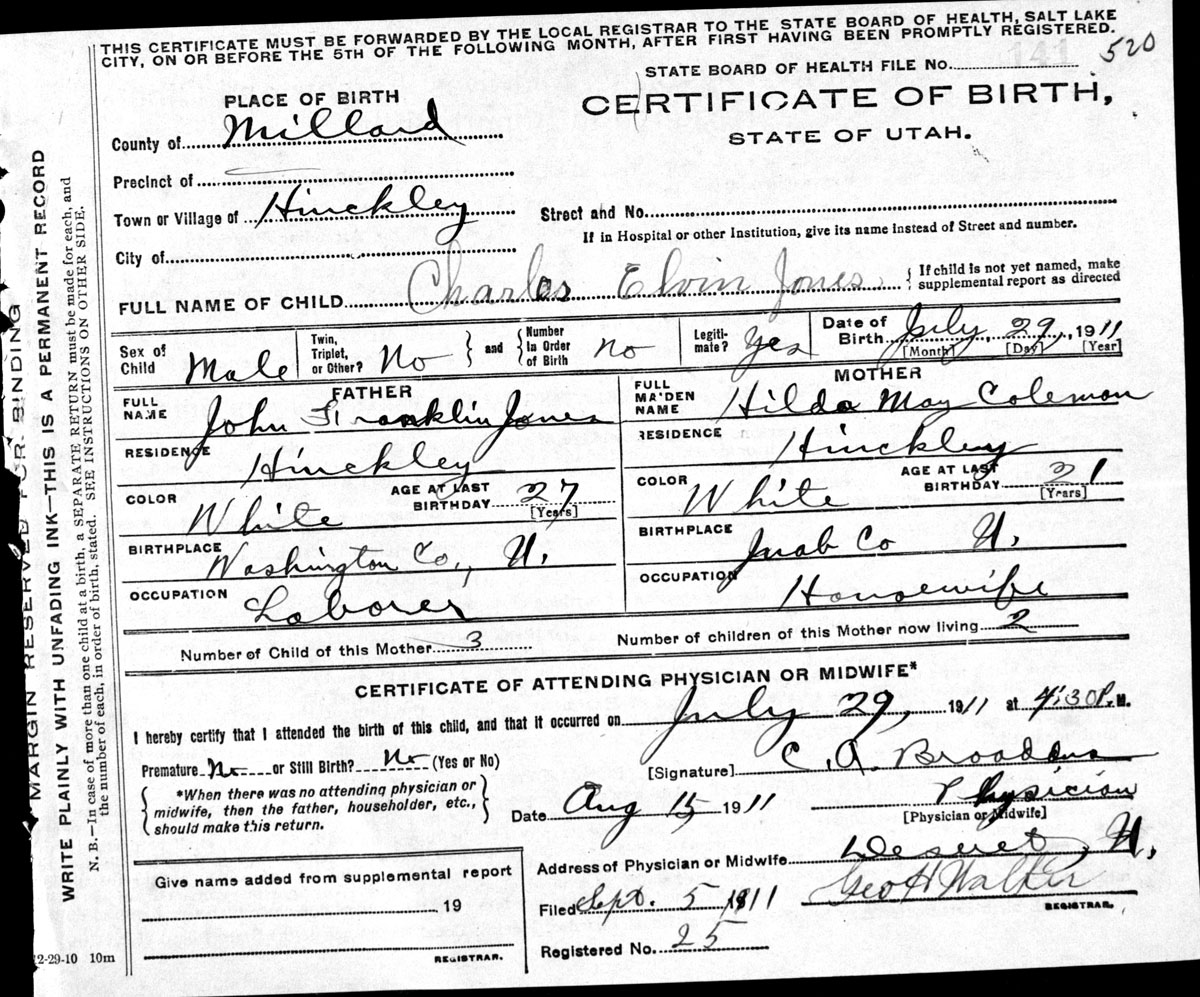 THIS CERTIFICATE MUST BE FORWARDED BY THE LOCAL REGISTRAR TO THE STATE BOARD OF HEALTH, SALT LAKE
CITY, ON OR BEFORE THE 5TH OF THE FOLLOWING MONTH, AFTER FIRST HAVING BEEN PROMPTLY REGISTERED.
141 520
STATE BOARD OF HEALTH FILE No.
PLACE OF BIRTH
CERTIFICATE OF BIRTH,
STATE OF UTAH.
County of Millard
Precinct of
Town or Village of Hinckley Street and No.
If in Hospital or other Institution, give its name instead of Street and number.
City of
FULL NAME OF CHILD Charles Elvin Jones { If child is not yet named, make supplemental report as directed
Sex of Child Male Twin, Triplet, or Other? No } and { Number In Order of Birth no Legiti-mate? Yes Date of Birth July, 29, 1911
[Month] [Day] [Year]
FATHER MOTHER
FULL NAME John Franklin Jones FULL MAIDEN NAME Hilda May Coleman
RESIDENCE Hinckley RESIDENCE Hinckley
COLOR White AGE AT LAST BIRTHDAY 27 [Years] COLOR White AGE AT LAST BIRTHDAY 21 [Years]
BIRTHPLACE Washington Co., U. BIRTHPLACE Juab Co U.
OCCUPATION Laborer OCCUPATION Housewife
Number of Child of this Mother 3 Number of children of this Mother now living 2
CERTIFICATE OF ATTENDING PHYSICIAN OR MIDWIFE*
I hereby certify that I attended the birth of this child, and that it occurred on July 29, 1911 at 4:30 P. M.
Premature No or Still Birth? No (Yes or No)
[Signature] C. A. Broaddus
{ *When there was no attending physician or
midwife, then the father, householder, etc.,
should make this return. }
Date Aug 15 1911 Physician
[Physician or Midwife]
Address of Physician or Midwife Deseret, U.
Give name added from supplemental report
19
REGISTRAR.
Filed Sept. 5 1911 Geo H Walker
REGISTRAR.
Registered No. 25
2-29-10 10m
MARGIN RESERVED FOR BINDING
WRITE PLAINLY WITH UNFADING INK—THIS IS A PERMANENT RECORD
N. B.—In case of more than one child at a birth, a SEPARATE RETURN must be made for each, and
the number of each, in order of birth, stated. SEE INSTRUCTIONS ON OTHER SIDE.